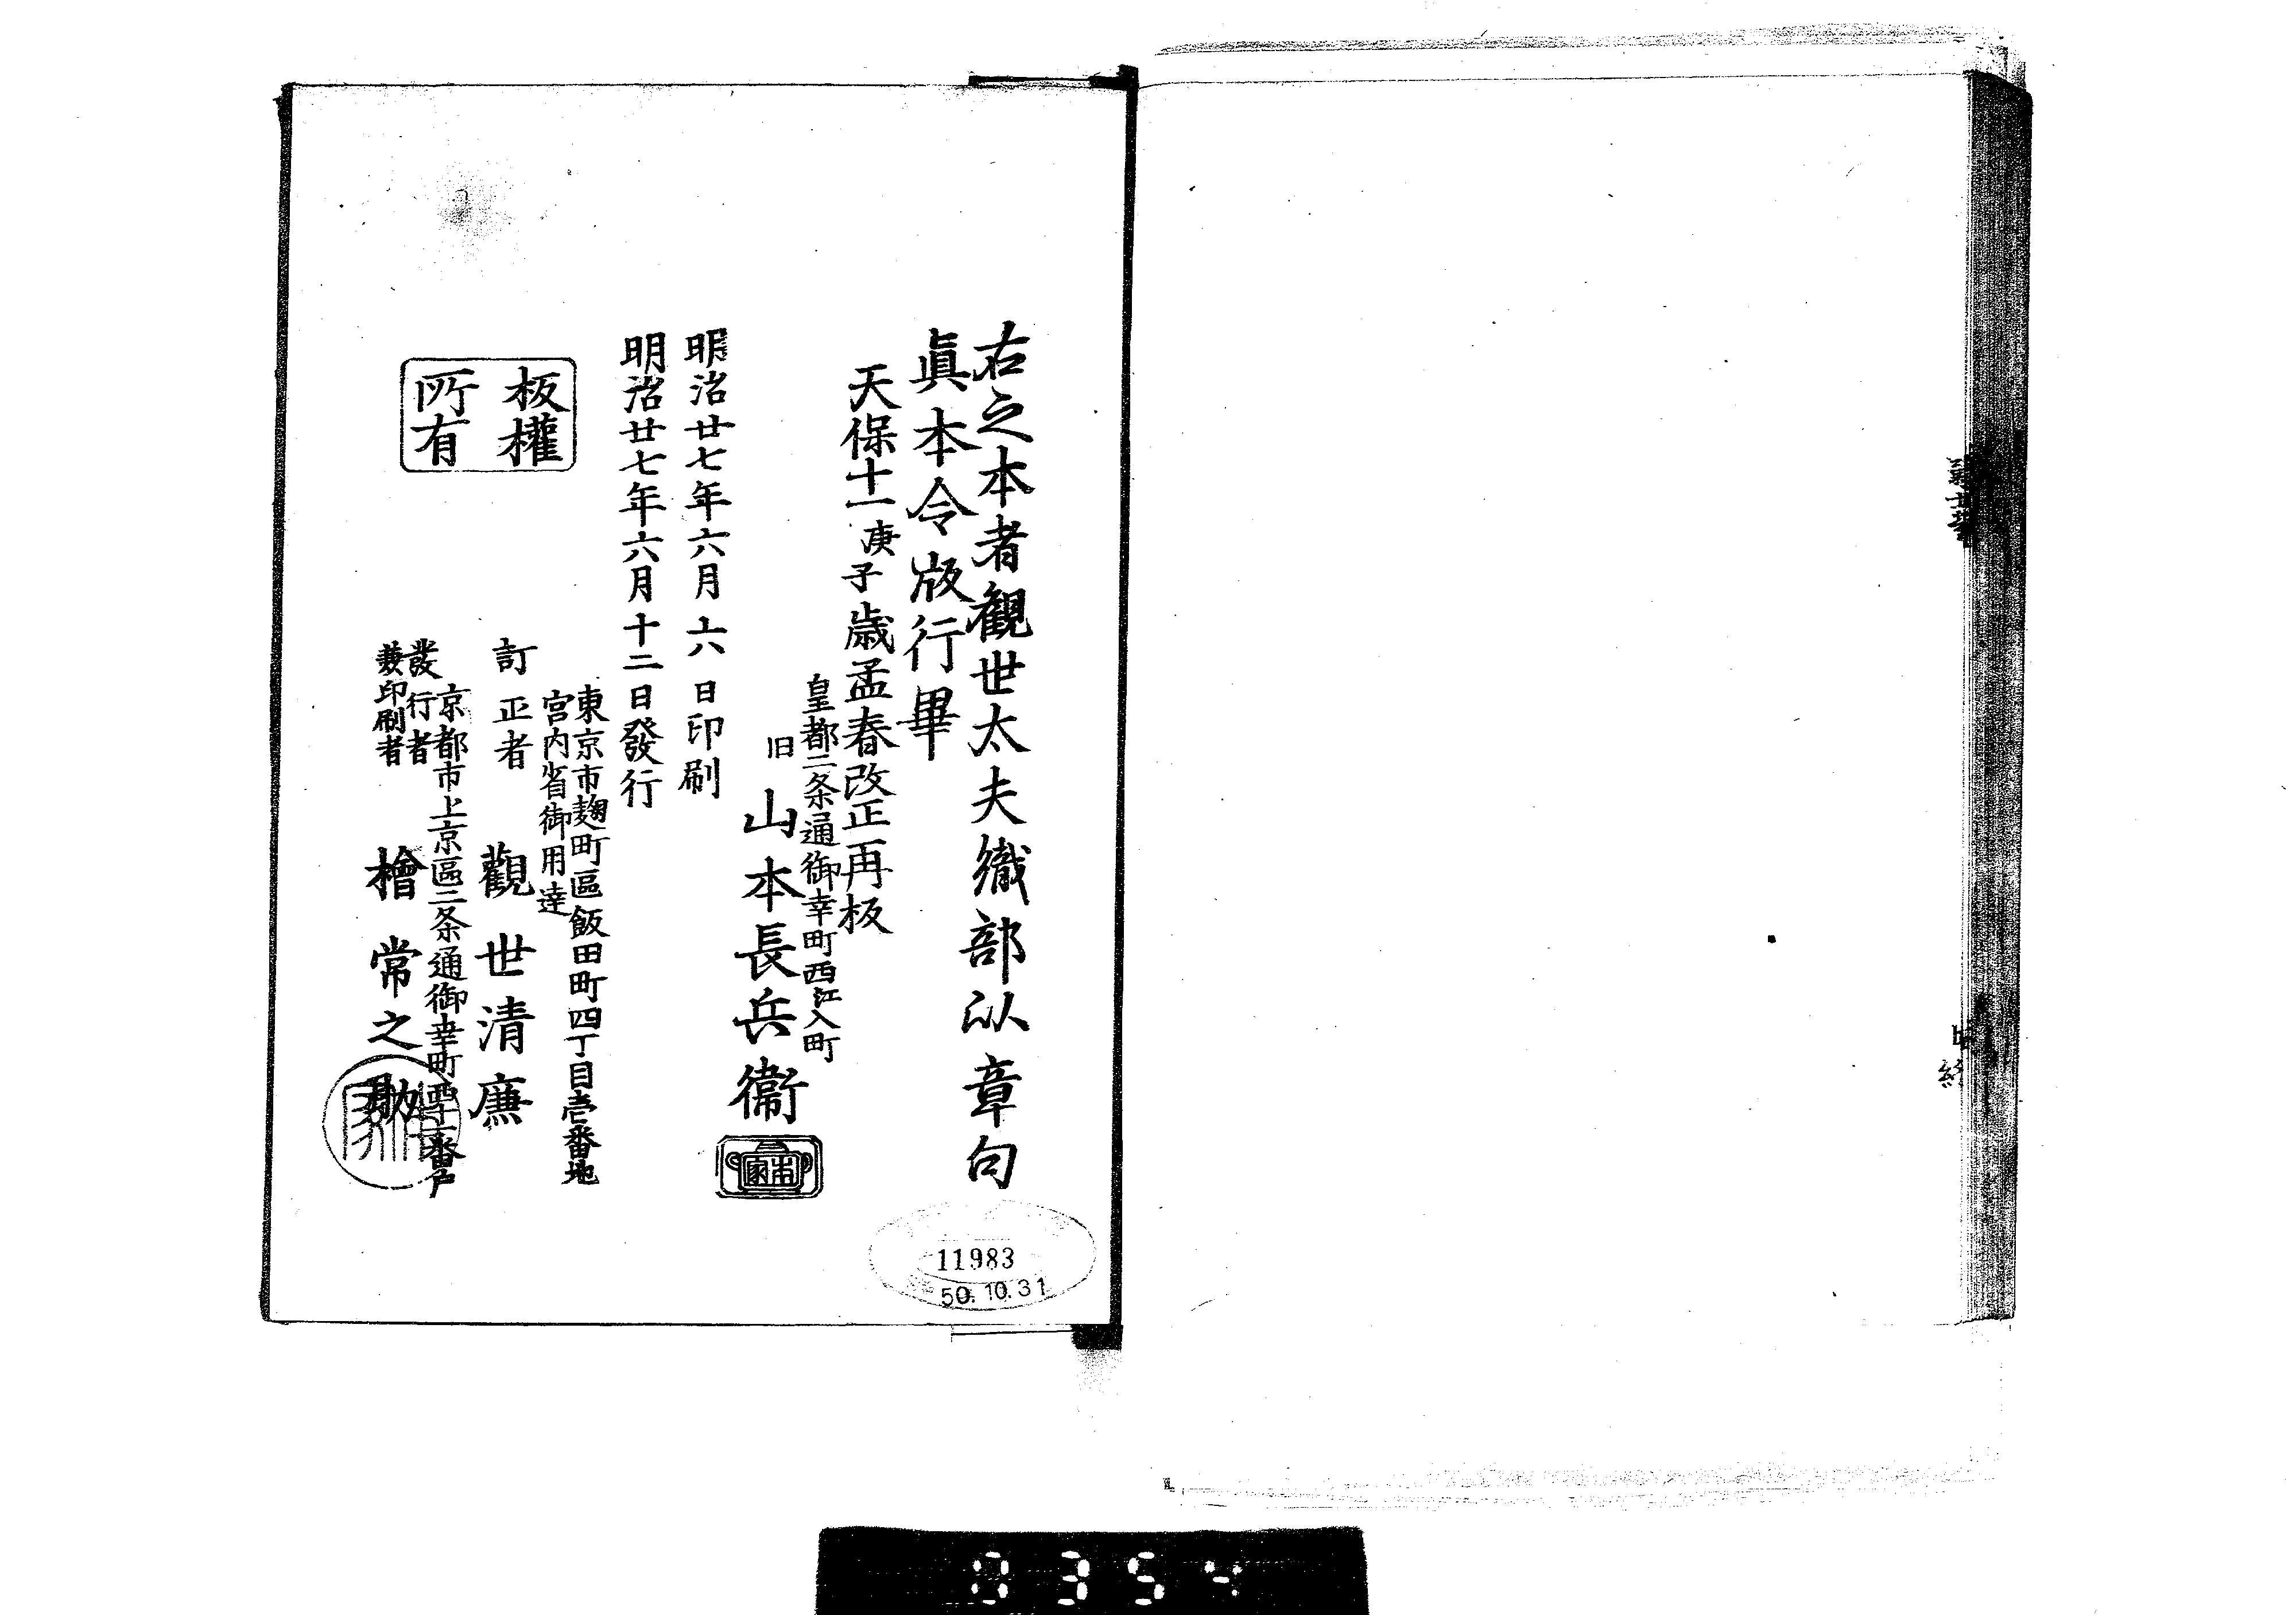 右之本者觀世太夫織部以章句
眞本令版行畢
天保十一庚子歳孟春改正再板
皇都二条通御幸町西江入町
旧 山本長兵衞
明治廿七年六月六日印刷
明治廿七年六月十二日發行
東京市麹町區飯田町四丁目壱番地
宮内省御用達
訂正者 觀世清廉
京都市上京區二条通御幸町西
番戸
發行者
兼印刷者 檜常之助
板權
所有
11983
50.10.31
0354